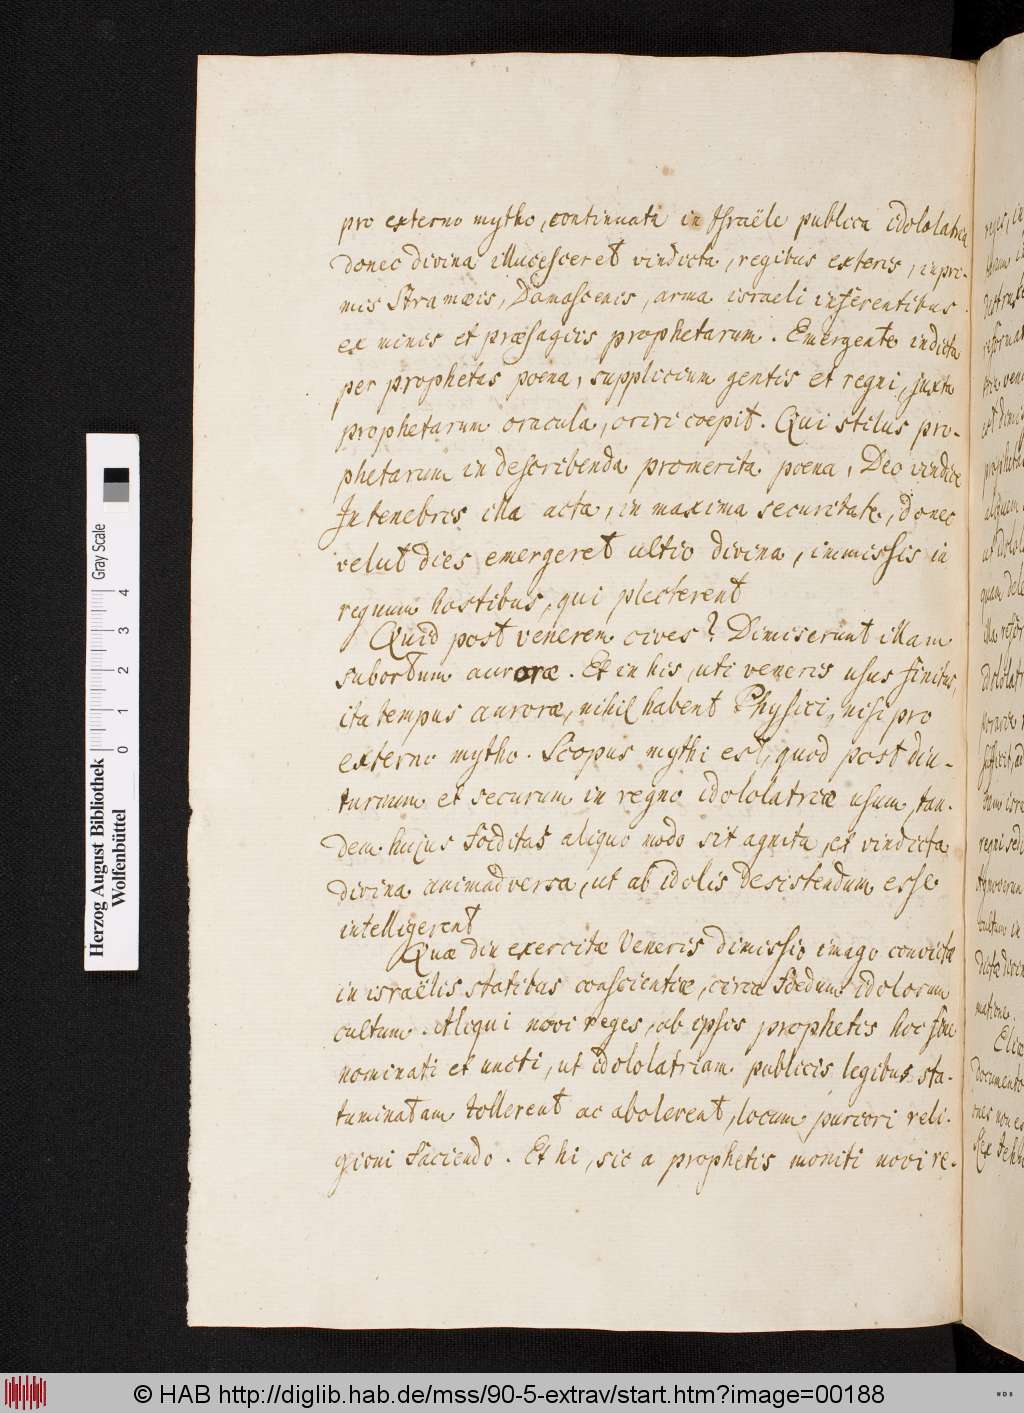 pro externo mytho, continuata in Israële publica idololatria
donec divina illucesceret vindicta, regibus exteris, inpri-
mis Aramæis, Damascenis, arma israeli inferentibus
ex minis et præsagiis prophetarum. Emergente indicta
per prophetas poena, supplicium gentis et regni, juxta
prophetarum oracula, oriri coepit. Qui stilus pro-
phetarum in describenda promerita poena, Deo vindice
In tenebris illa acta, in maxima securitate, donec
velut dies emergeret ultio divina, immissis in
regnum hostibus, qui plecterent
Quid post venerem cives? Dimiserunt illam
sub ortum auroræ. Et in his, uti veneris usus finitus,
ita tempus auroræ, nihil habent Physici, nisi pro
externo mytho. Scopus mythi est, quod post diu-
turnum et securum in regno idololatriæ usum, tan-
dem hujus foeditas aliquo modo sit agnita, et vindicta
divina animadversa, ut ab idolis desistendum esse
intelligerent
Quæ diu exercitæ Veneris dimissio imago convictæ
in israëlis statibus conscientiæ, circa foedum idolorum
cultum. Aliqui novi reges, ab ipsis prophetis hoc fine
nominati et uncti, ut idololatriam publicis legibus sta-
tuminatam tollerent ac abolerent, locum puriori reli-
gioni faciendo. Et hi, sic a prophetis moniti novi re-
Herzog August Bibliothek
Wolfenbüttel
Gray Scale
0 1 2 3 4
© HAB http://diglib.hab.de/mss/90-5-extrav/start.htm?image=00188